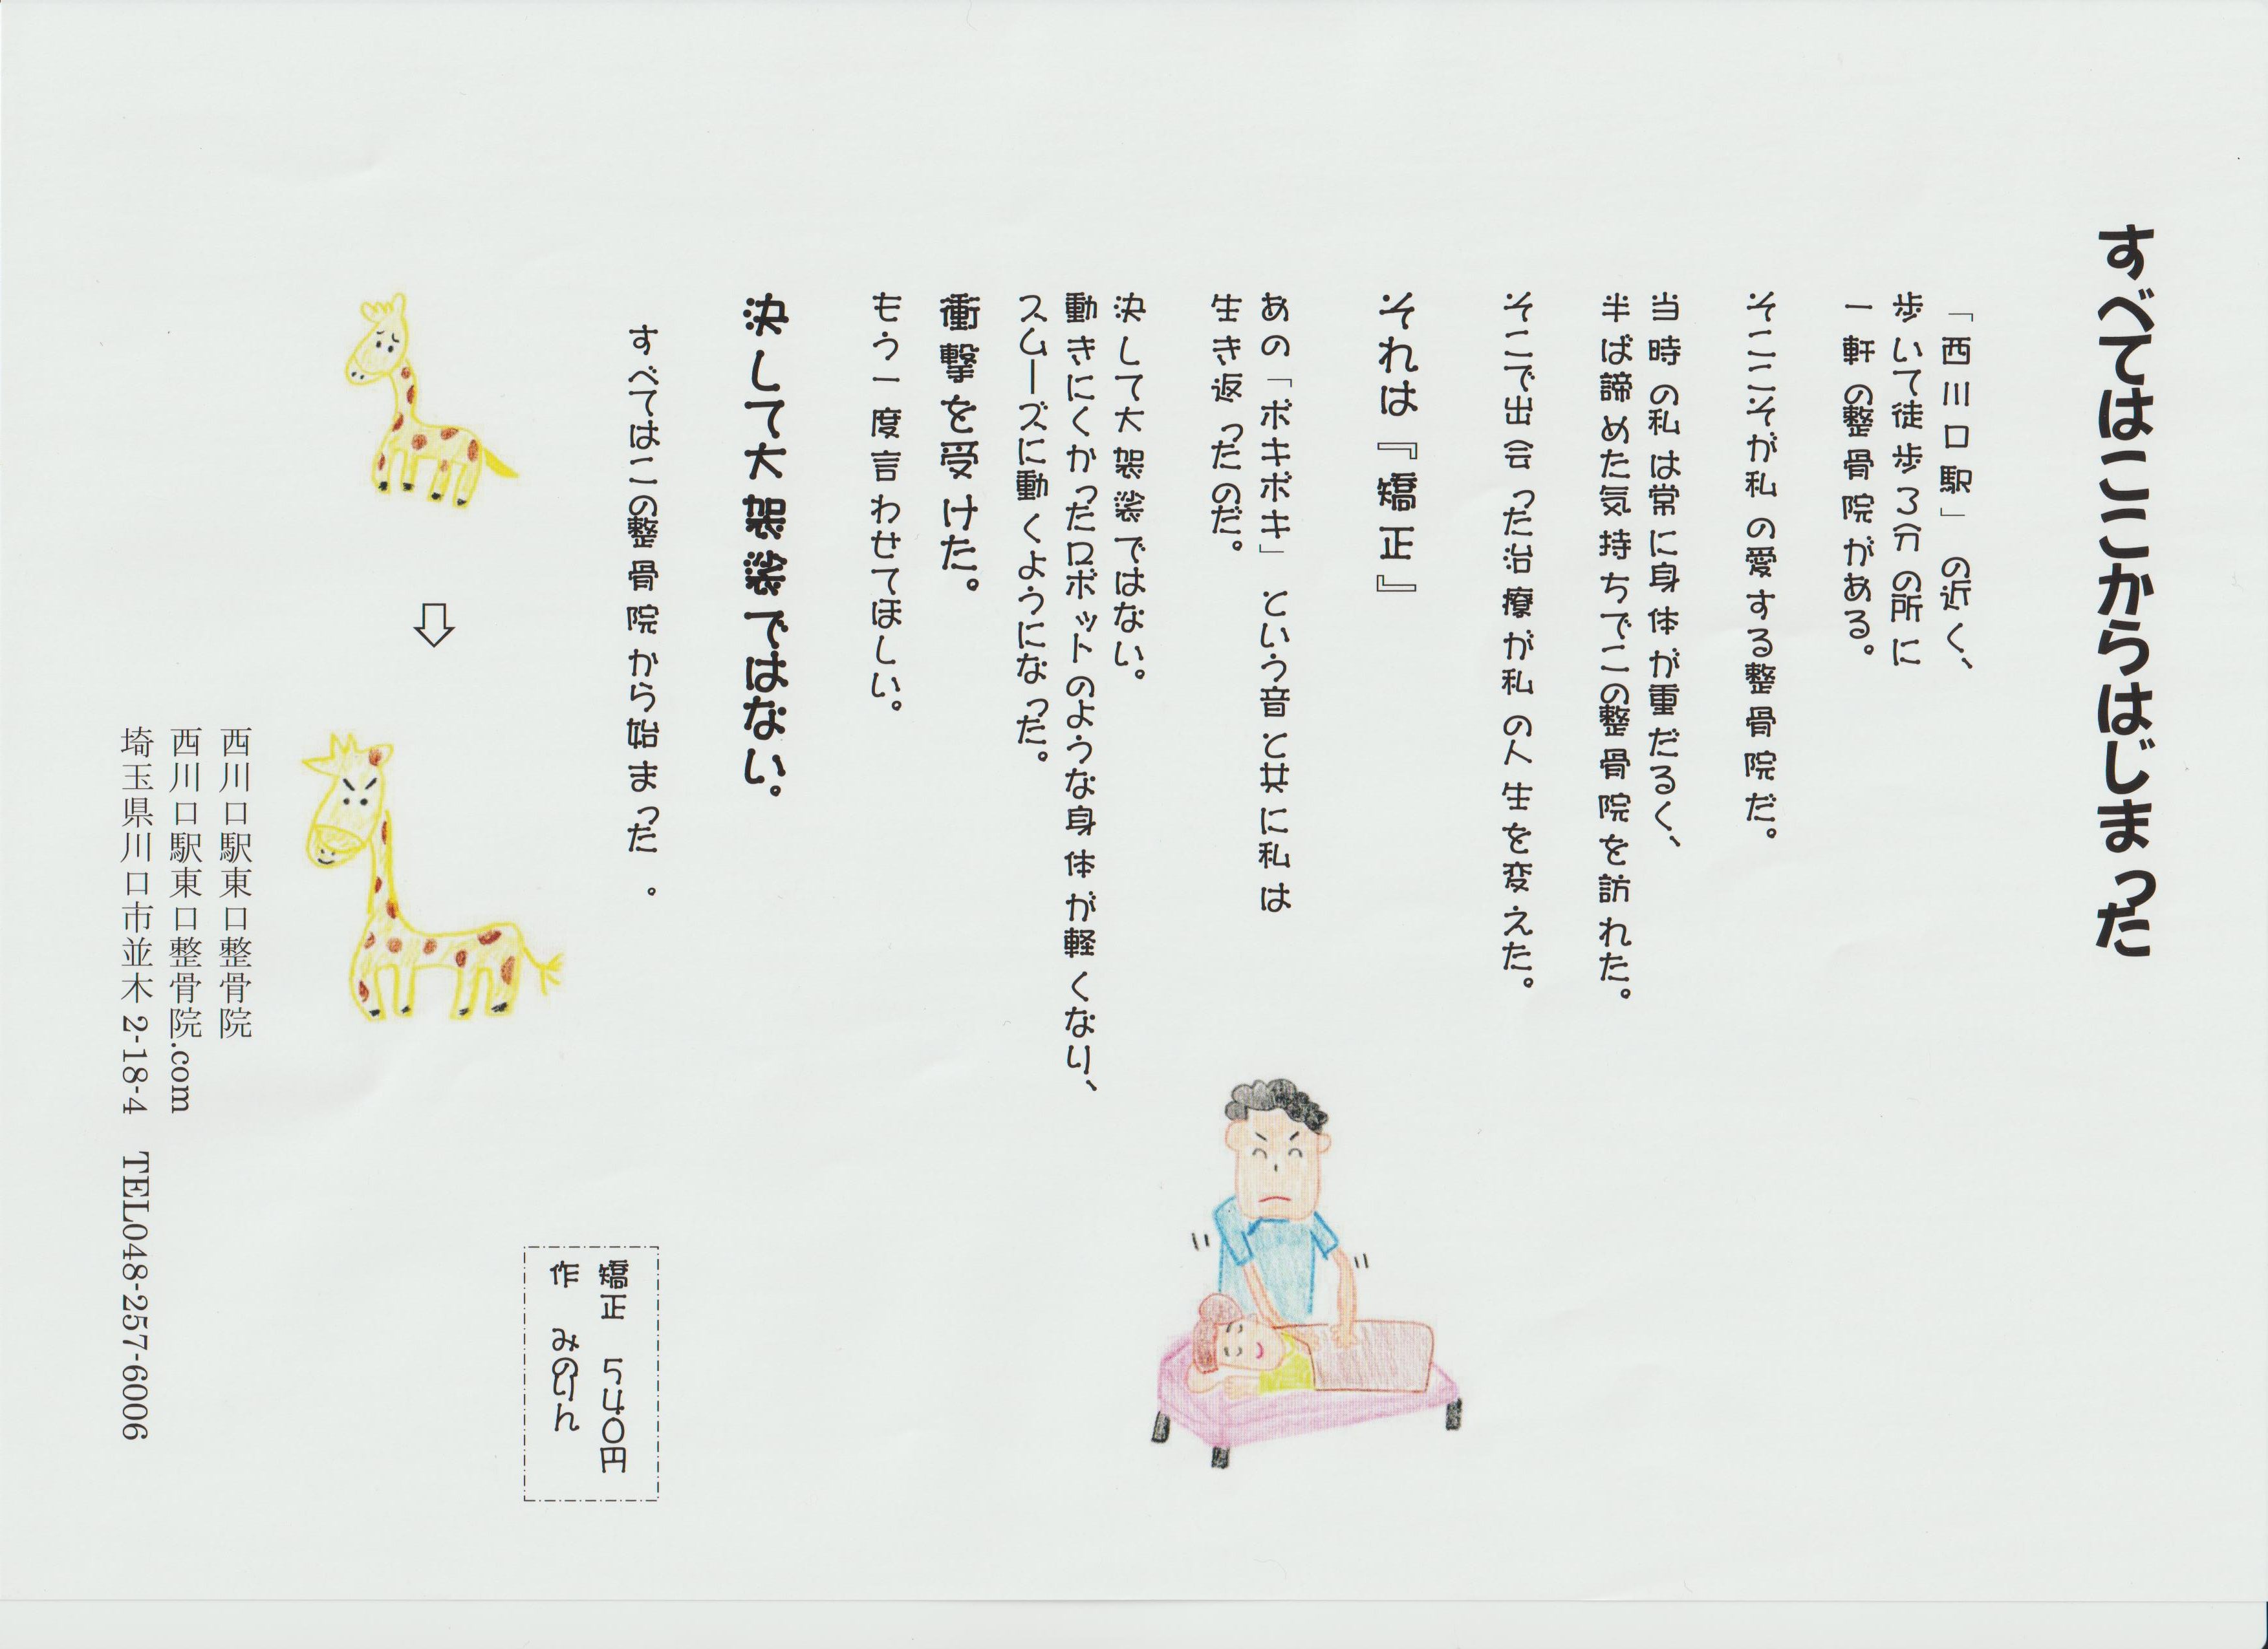 すべてはここからはじまった
「西川口駅」の近く、
歩いて徒歩3分の所に
一軒の整骨院がある。
そここそが私の愛する整骨院だ。
当時の私は常に身体が重だるく、
半ば諦めた気持ちでこの整骨院を訪れた。
そこで出会った治療が私の人生を変えた。
それは『矯正』
あの「ボキボキ」という音と共に私は
生き返ったのだ。
決して大袈裟ではない。
動きにくかったロボットのような身体が軽くなり、
スムーズに動くようになった。
衝撃を受けた。
もう一度言わせてほしい。
決して大袈裟ではない。
すべてはこの整骨院から始まった。
矯正 540円
作 みのりん
西川口駅東口整骨院
西川口駅東口整骨院.com
埼玉県川口市並木2-18-4 TEL048-257-6006